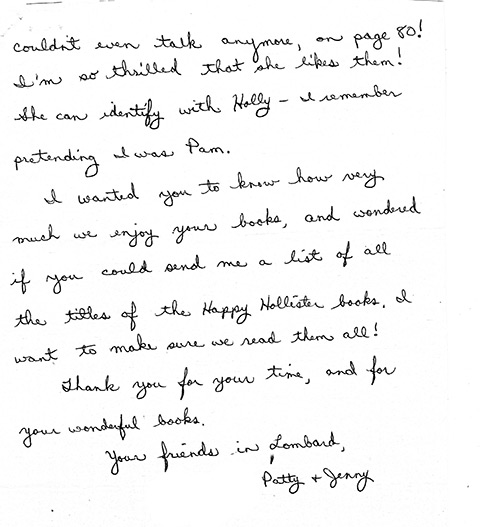 couldn't even talk anymore, on page 80!
I'm so thrilled that she likes them!
She can identify with Holly - I remember
pretending I was Pam.
I wanted you to know how very
much we enjoy your books, and wondered
if you could send me a list of all
the titles of the Happy Hollister books. I
want to make sure we read them all!
Thank you for your time, and for
your wonderful books.
Your friends in Lombard,
Patty + Jenny